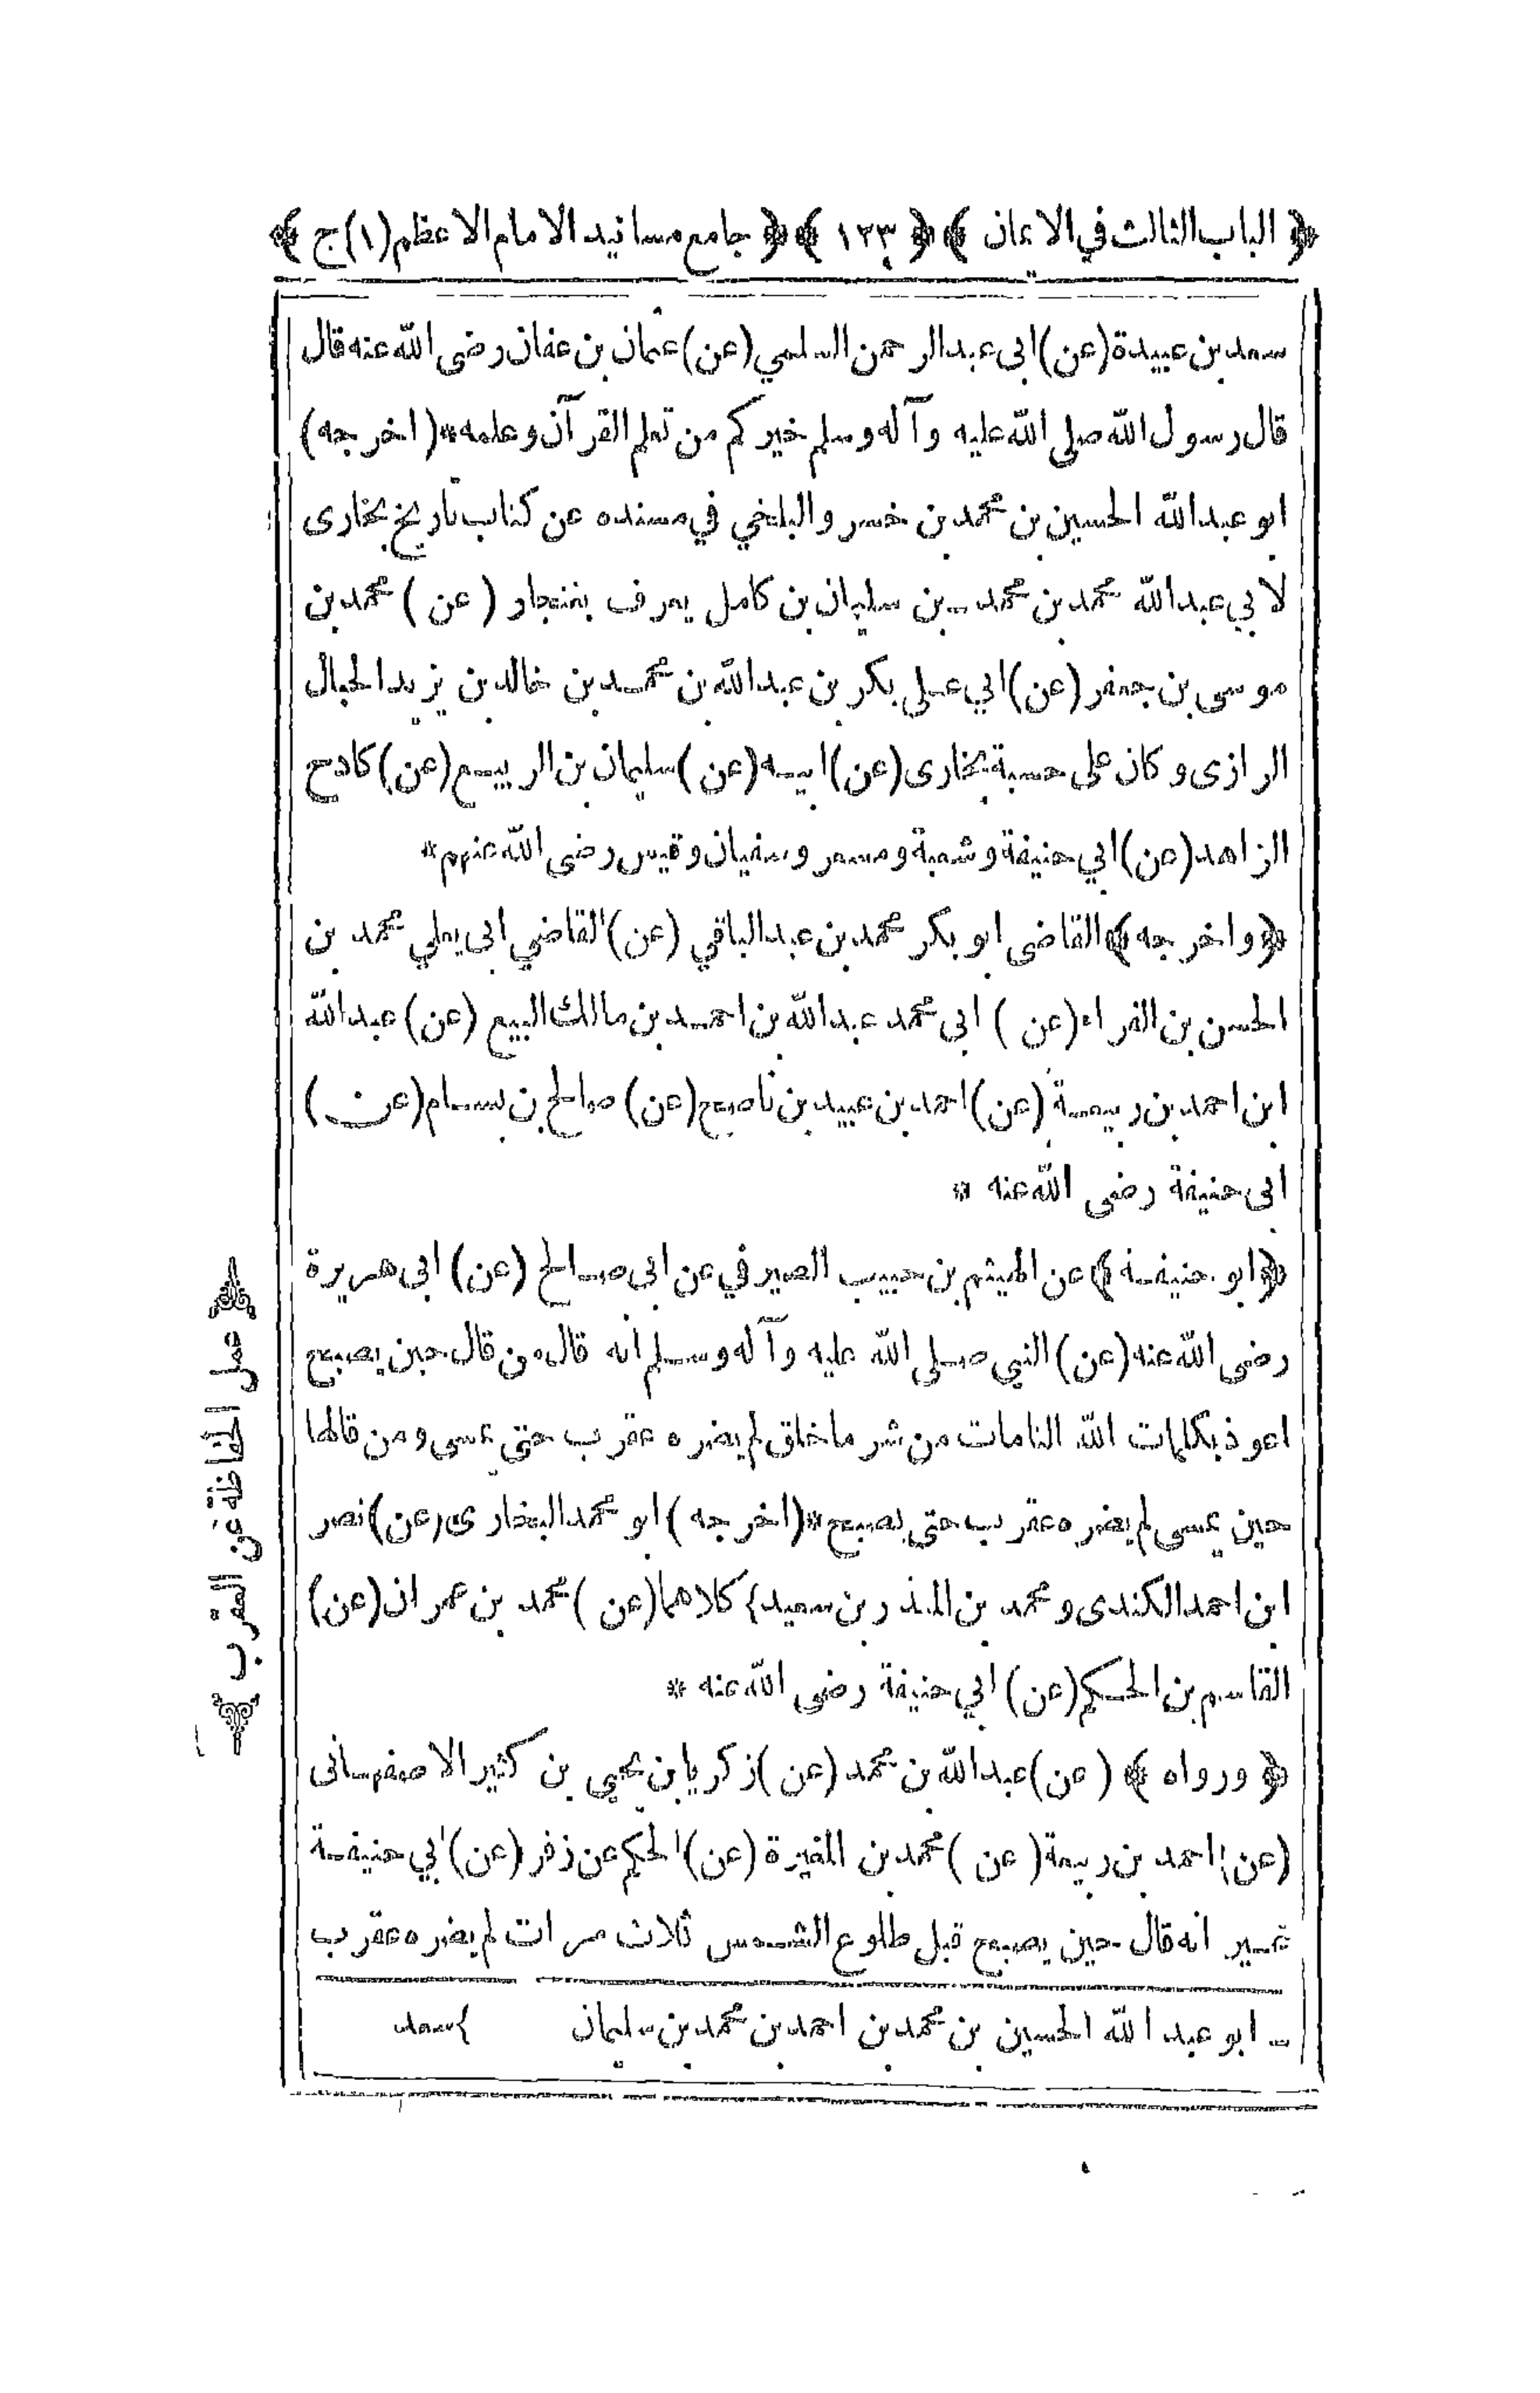 ﴿ الباب الثالث في الايمان ﴾ ﴿ ١٢٣ ﴾ ﴿ جامع مسانيد الامام الاعظم (١) ج ﴾
سعد بن عبيدة (عن) ابى عبد الرحمن السلمي (عن) عثمان بن عفان رضى الله عنه قال
قال رسول الله صلى الله عليه وآله وسلم خيركم من تعلم القرآن وعلمه * (اخرجه)
ابو عبد الله الحسين بن محمد بن خسرو البلخي في مسنده عن كتاب تاريخ بخارى
لابي عبد الله محمد بن محمد ـ بن سليمان بن كامل يعرف بغنجار (عن) محمد بن
موسى بن جعفر (عن) ابي علي بكر بن عبد الله بن محمد بن خالد بن يزيد الحبال
الرازى وكان على حسبة بخارى (عن) ابيه (عن) سليمان بن الربيع (عن) كادح
الزاهد (عن) ابي حنيفة وشعبة ومسعر وسفيان وقيس رضى الله عنهم *
﴿ واخرجه ﴾ القاضى ابو بكر محمد بن عبد الباقي (عن) القاضي ابى يعلي محمد بن
الحسن بن الفراء (عن) ابى محمد عبد الله بن احمد بن مالك البيع (عن) عبد الله
ابن احمد بن ربيعة (عن) احمد بن عبيد بن ناصح (عن) صالح بن بسام (عن)
ابى حنيفة رضى الله عنه *
﴿ ابو حنيفة ﴾ عن الهيثم بن حبيب الصيرفي عن ابى صالح (عن) ابى هريرة
رضى الله عنه (عن) النبي صلى الله عليه وآله وسلم انه قال من قال حين يصبح
اعوذ بكلمات الله التامات من شر ما خلق لم يضره عقرب حتى يمسى ومن قالها
حين يمسى لم يضره عقرب حتى يصبح * (اخرجه) ابو محمد البخارى (عن) نصر
ابن احمد الكندى ومحمد بن المنذر بن سعيد} كلاهما (عن) محمد بن عمران (عن)
القاسم بن الحكم (عن) ابي حنيفة رضى الله عنه *
﴿ ورواه ﴾ (عن) عبد الله بن محمد (عن) زكريا بن يحيى بن كثير الاصفهانى
(عن) احمد بن ربيعة (عن) محمد بن المغيرة (عن) الحكم عن زفر (عن) ابي حنيفة
غير انه قال حين يصبح قبل طلوع الشمس ثلاث مرات لم يضره عقرب
ـ ابو عبد الله الحسين بن محمد بن احمد بن محمد بن سليمان }سعد
﴿ عمل الحفاظة عن العقرب ﴾